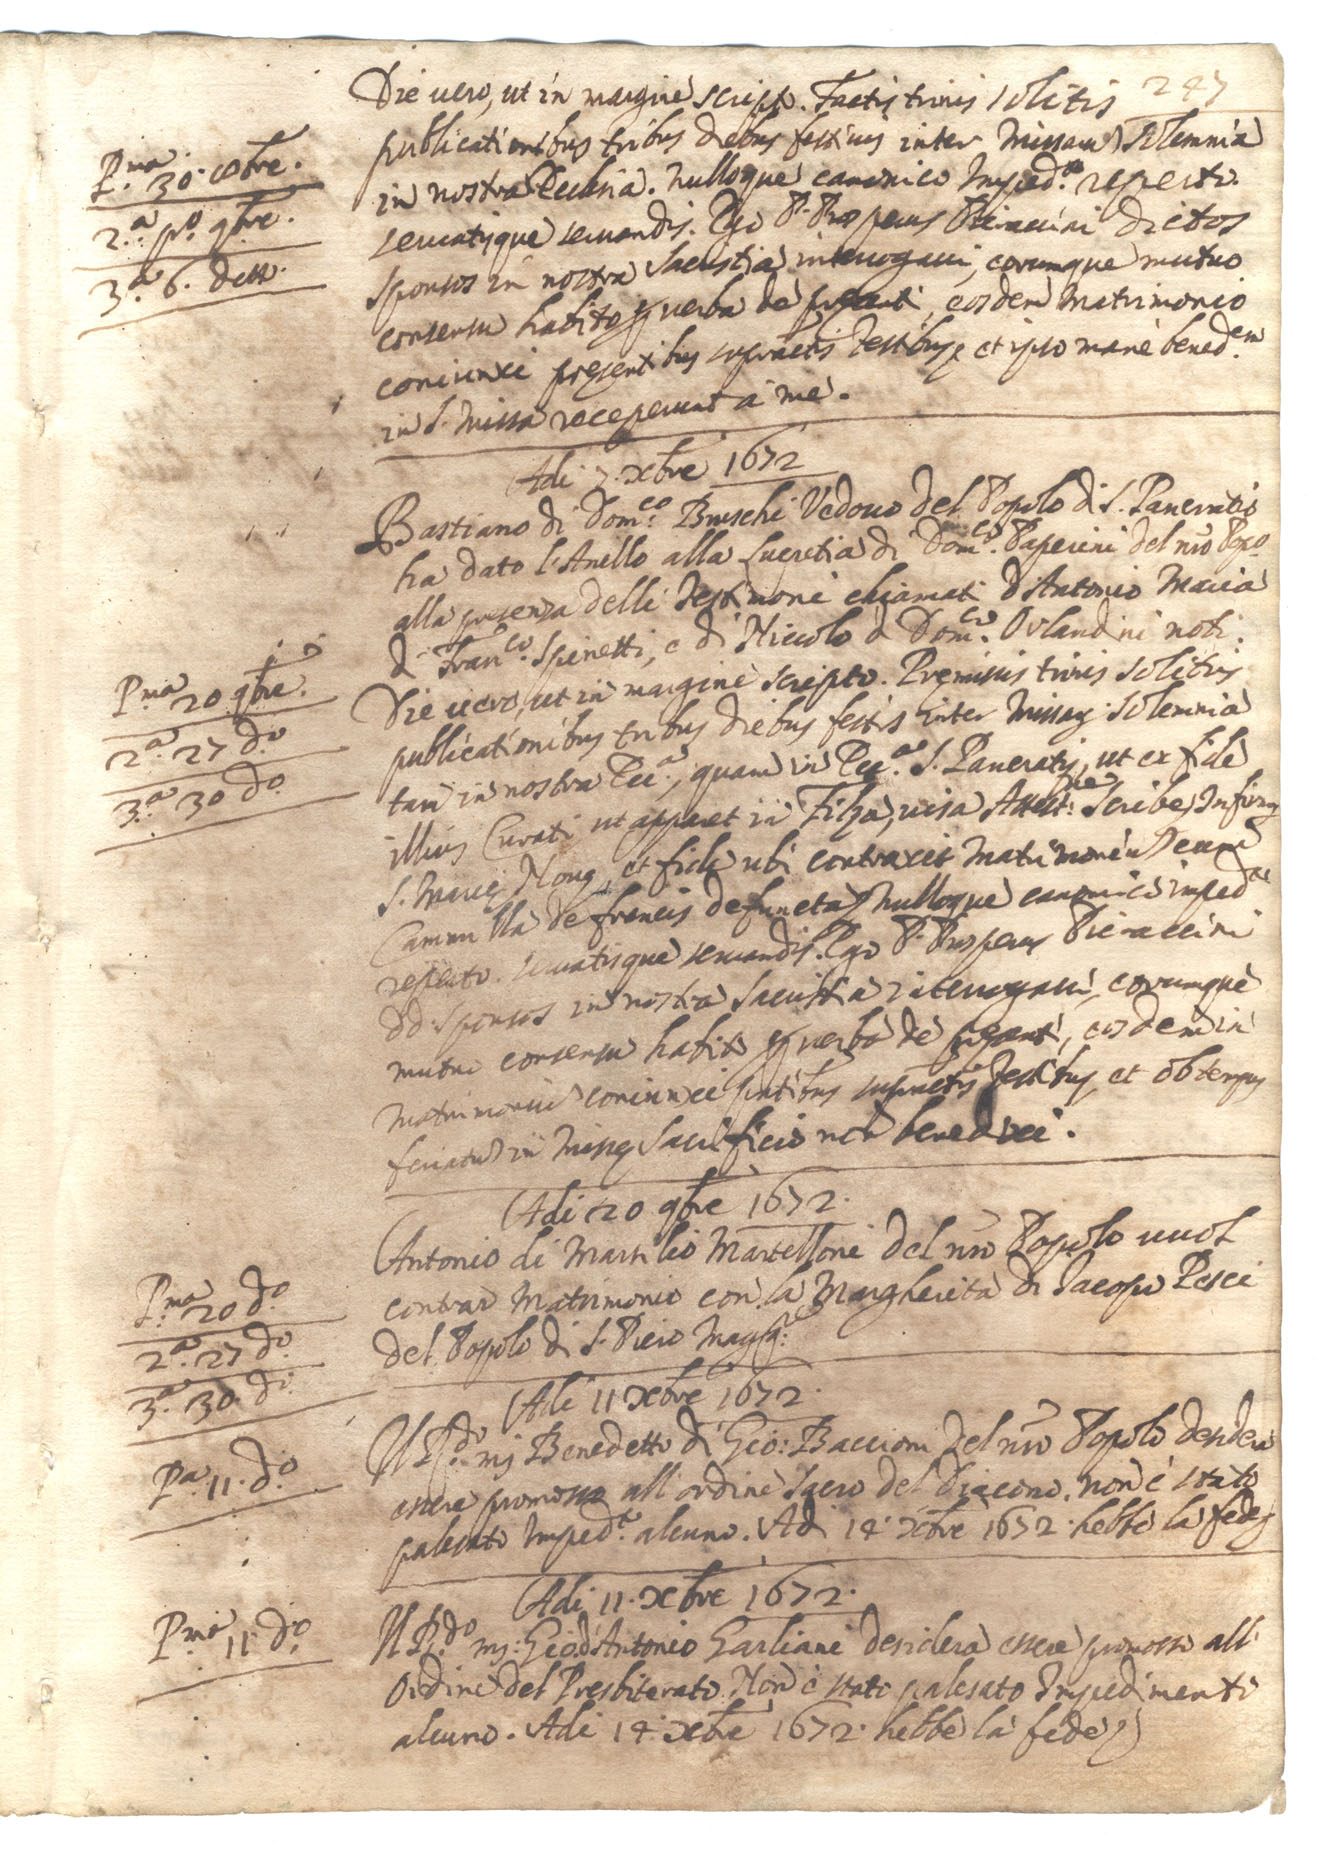 247
Die uero, ut in margine script. Factis trinis solitis
publicationibus tribus diebus festiuis inter Missarum Solemnia
in nostra Ecclesia. nulloque canonico Imped.º reperto.
seruatisque seruandis. Ego P. Prosperus Pieraccini dictos
sponsos in nostra Sacristia interrogaui, eorumque mutuo
consensu habito p uerba de presenti, eosdem Matrimonio
coniunxi presentibus supradictis Testibus, et ipso mane bened.em
in S. Missa receperunt a me.
P.ma 30. 8bre.
2.a p.º 9bre.
3.a 6. detto.
Adi 7. Xbre 1672
Bastiano di Dom.co Bruschi Vedouo del Popolo di S. Pancratio
ha dato l'Anello alla Lucretia di Dom.co Paperini del nro Popo
alla presenza delli Testimoni chiamati d'Antonio Maria
di Fran.co Spinetti, e di Niccolo di Dom.co Orlandini noti.
Die uero, ut in margine scripto. Premissis trinis solitis
publicationibus tribus diebus festis inter Missar. Solemnia
tam in nostra Ecc.a, quam in Ecc.a S. Pancratij, ut ex fide
illius Curati ut apparet in Filza, uisa Attest.ne Scribe Infirmor
S. Marie Noue, et fide ubi contraxit Matrimoniu cum
Cammilla de francis defuncta, nulloque canonico imped.to
reperto. seruatisque seruandis. Ego P. Prosperus Pieraccini
dd. sponsos in nostra Sacristia interrogaui, eorumque
mutuo consensu habito p uerba de presenti, eosdem in
Matrimoniu coniunxi pntibus supradictis Testibus, et ob tempus
feriatu in Misse Sacrificio non benedixi.
P.ma 20 9bre.
2.a 27 d.º
3.a 30 d.º
Adi 20 9bre 1672.
Antonio di Marsilio Martelloni del nro Popolo uuol
contrar Matrimonio con la Margherita di Jacopo Pesci
del Popolo di S. Piero Magg.e
P.ma 20 d.º
2.a 27 d.º
3.a 30. d.º
Adi 11 Xbre 1672.
Il R.do mj Benedetto di Gio: Baccioni del nro Popolo desidera
essere promosso all ordine Sacro del Diacono. non è stato
palesato Imped.to alcuno. Adi 14 Xbre 1672. hebbe la fede
P.a 11. d.º
Adi 11. Xbre 1672.
Il R.do mj. Gio: d'Antonio Garliani desidera essere promosso all'
Ordine del Presbiterato. Non è stato palesato Impedimento
alcuno. Adi 14. Xbre 1672. hebbe la fede
P.ma 11. d.º